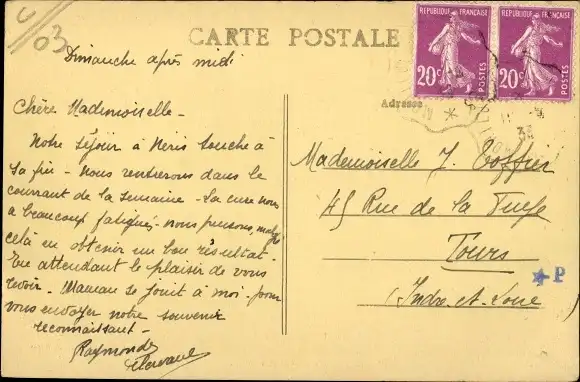 03
CARTE POSTALE
REPUBLIQUE FRANÇAISE
20c
POSTES
REPUBLIQUE FRANÇAISE
20c
POSTES
Dimanche après midi
Adresse
Chère Mademoiselle -
Notre séjour à Néris touche à
sa fin - Nous rentrerons dans le
courant de la semaine - La cure nous
a beaucoup fatigués - nous pensons, malgré
celà en obtenir un bon résultat -
En attendant le plaisir de vous
revoir - Maman se joint à moi - pour
vous envoyer notre souvenir
reconnaissant -
Raymonde
Mademoiselle J.
45 Rue de la
Tours
(Indre-et-Loire
P